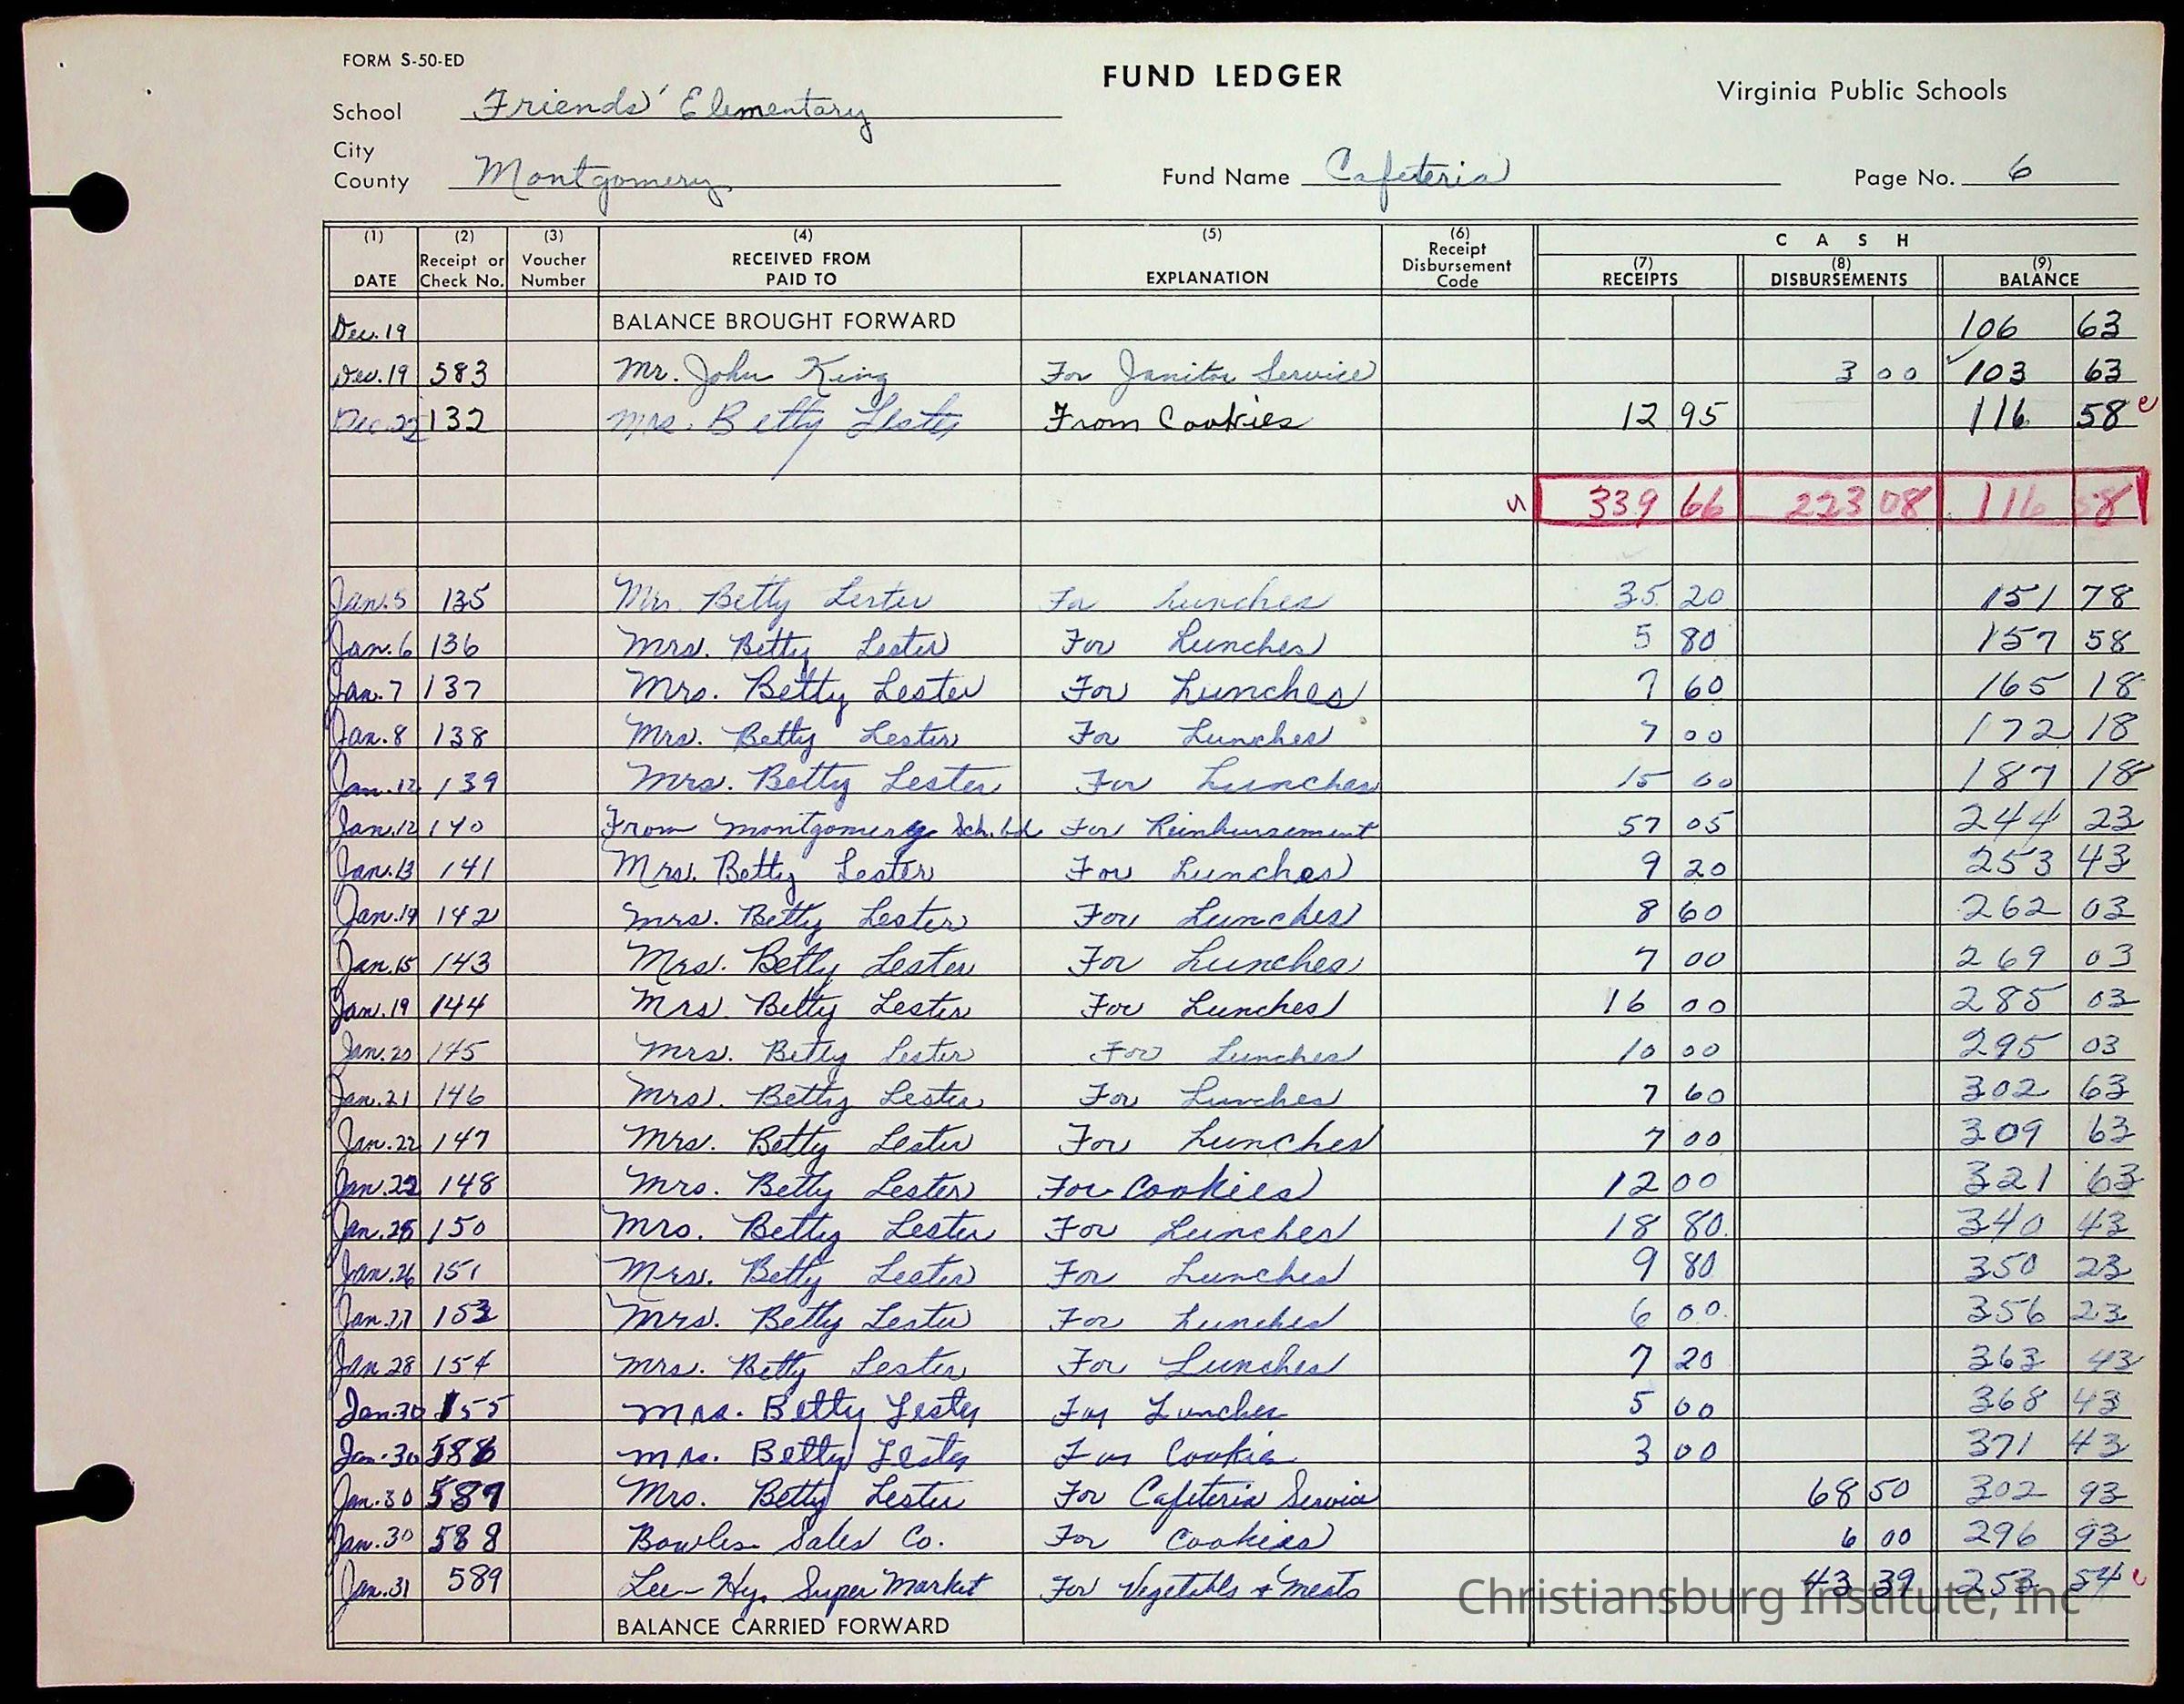 FORM S-50-ED
FUND LEDGER
Virginia Public Schools
School Friends' Elementary
City
County Montgomery
Fund Name Cafeteria
Page No. 6
(1) (2) (3) (4) (5) (6) C A S H
DATE Receipt or Check No. Voucher Number RECEIVED FROM PAID TO EXPLANATION Receipt Disbursement Code (7) RECEIPTS (8) DISBURSEMENTS (9) BALANCE
Dec. 19 BALANCE BROUGHT FORWARD 106 63
Dec. 19 583 Mr. John King For Janitor Service 3 00 103 63
Dec. 22 132 Mrs. Betty Lester From Cookies 12 95 116 58
339 66 223 08 116 58
Jan. 5 135 Mrs. Betty Lester For Lunches 35 20 151 78
Jan. 6 136 Mrs. Betty Lester For Lunches 5 80 157 58
Jan. 7 137 Mrs. Betty Lester For Lunches 7 60 165 18
Jan. 8 138 Mrs. Betty Lester For Lunches 7 00 172 18
Jan. 12 139 Mrs. Betty Lester For Lunches 15 00 187 18
Jan. 12 140 From Montgomery Sch. bd. For Reimbursement 57 05 244 23
Jan. 13 141 Mrs. Betty Lester For Lunches 9 20 253 43
Jan. 14 142 Mrs. Betty Lester For Lunches 8 60 262 03
Jan. 15 143 Mrs. Betty Lester For Lunches 7 00 269 03
Jan. 19 144 Mrs. Betty Lester For Lunches 16 00 285 03
Jan. 20 145 Mrs. Betty Lester For Lunches 10 00 295 03
Jan. 21 146 Mrs. Betty Lester For Lunches 7 60 302 63
Jan. 22 147 Mrs. Betty Lester For Lunches 7 00 309 63
Jan. 22 148 Mrs. Betty Lester For Cookies 12 00 321 63
Jan. 25 150 Mrs. Betty Lester For Lunches 18 80 340 43
Jan. 26 151 Mrs. Betty Lester For Lunches 9 80 350 23
Jan. 27 153 Mrs. Betty Lester For Lunches 6 00 356 23
Jan. 28 154 Mrs. Betty Lester For Lunches 7 20 363 43
Jan. 30 155 Mrs. Betty Lester For Lunches 5 00 368 43
Jan. 30 586 Mrs. Betty Lester For Cookie 3 00 371 43
Jan. 30 587 Mrs. Betty Lester For Cafeteria Service 68 50 302 93
Jan. 30 588 Bowles Sales Co. For Cookies 6 00 296 93
Jan. 31 589 Lee-Hy. Super Market For Vegetables & Meats 43 39 253 54
BALANCE CARRIED FORWARD
Christiansburg Institute, Inc